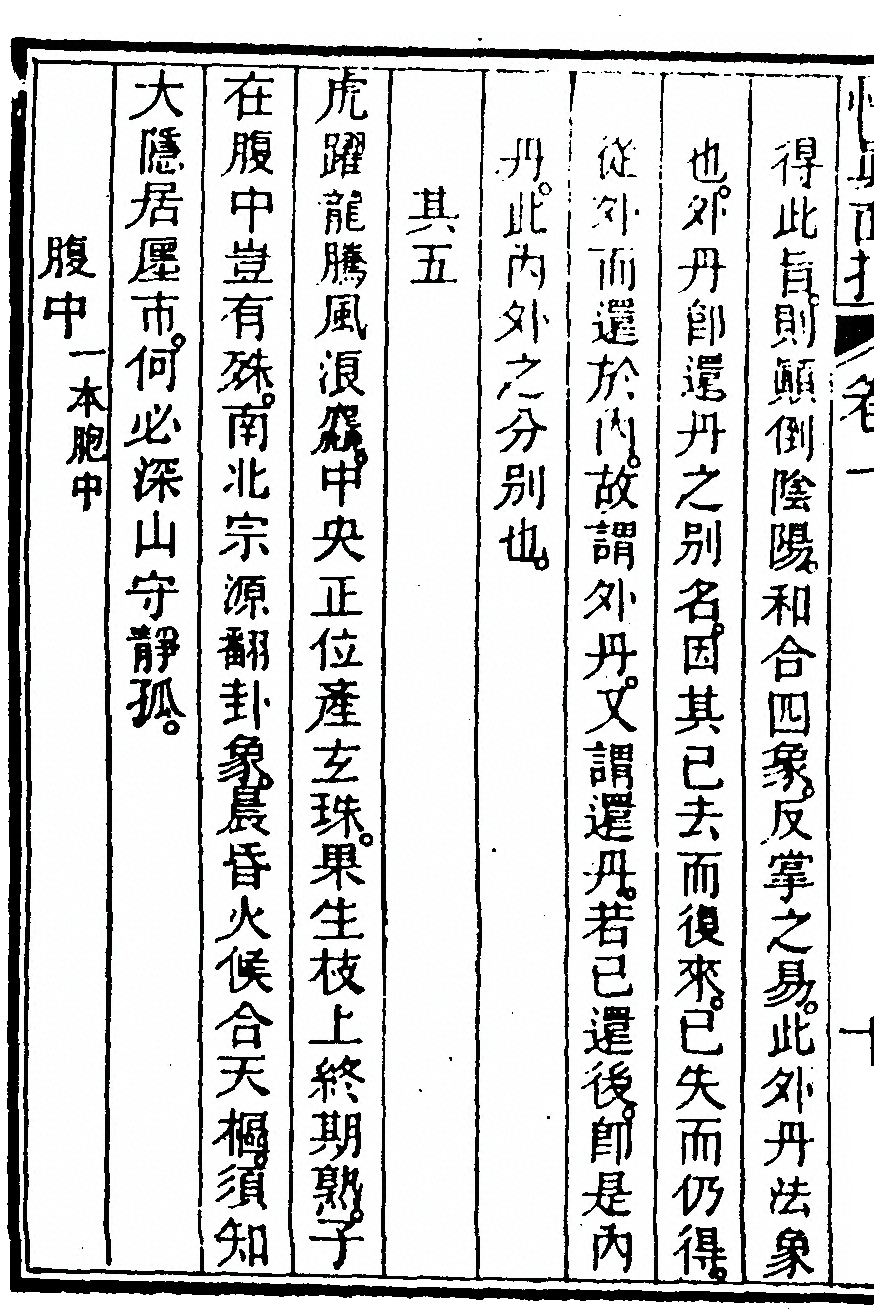 悟真直指 卷一
得此旨。則顛倒陰陽。和合四象。反掌之易。此外丹法象
也。外丹卽還丹之別名。因其已去而復來。已失而仍得。
從外而還於內。故謂外丹。又謂還丹。若已還後。卽是內
丹。此內外之分別也。
其五
虎躍龍騰風浪麤。中央正位產玄珠。果生枝上終期熟。子
在腹中豈有殊。南北宗源翻卦象。晨昏火候合天樞。須知
大隱居廛市。何必深山守靜孤。
腹中 一本胞中